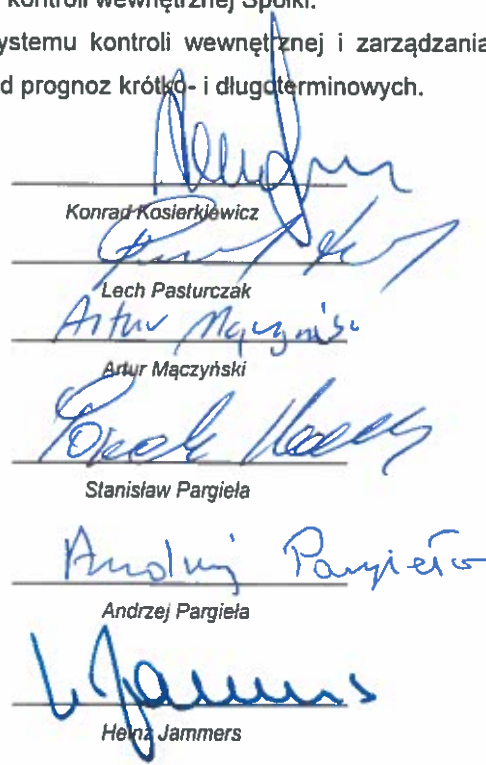 kontroli wewnętrznej Spółki.
ystemu kontroli wewnętrznej i zarządzania
d prognoz krótko- i długoterminowych.
Konrad Kosierkiewicz
Lech Pasturczak
Artur Mączyński
Artur Mączyński
Stanisław Pargieła
Andrzej Pargieła
Andrzej Pargieła
Jammers
Heinz Jammers